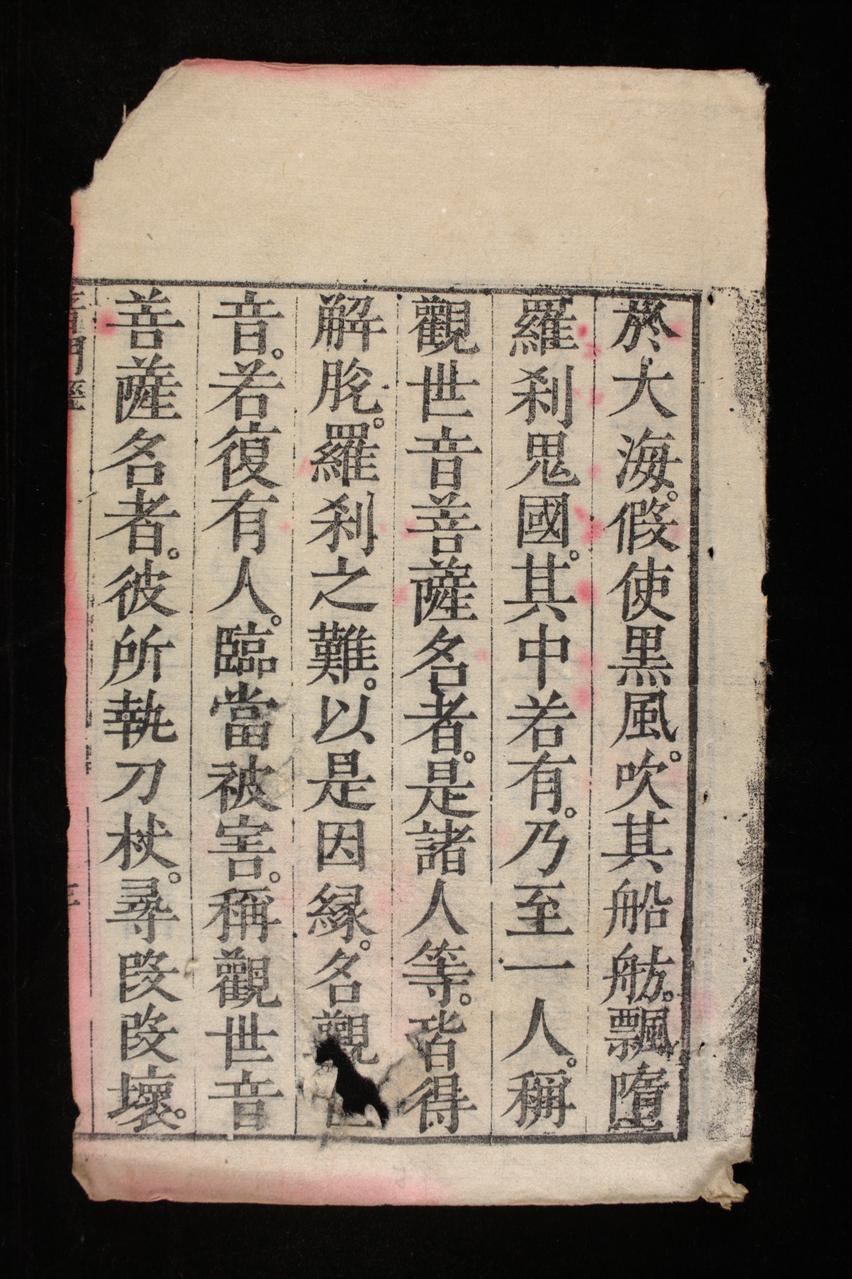 於大海。假使黒風。吹其船舫。飄墮
羅刹鬼國。其中若有。乃至一人。稱
觀世音菩薩名者。是諸人等。皆得
解脫。羅刹之難。以是因緣。名觀世
音。若復有人。臨當被害。稱觀世音
菩薩名者。彼所執刀杖。尋叚叚壞。
門經